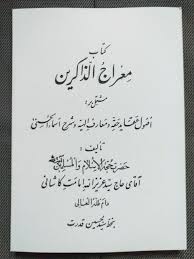 کتاب
معراج الذاکرین
مشتمل بر:
اصول عقاید حقه و معارف الهیه و شرح اسماء الحسنی
تألیف:
حضرت حجة الاسلام والمسلمین
آقای حاج سید عزیز الله امامت کاشانی
دام ظله العالی
بخط سید حسین قدرت